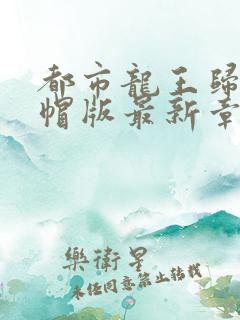 都市龍王歸
帽版最新章
樂衛星
未经同意禁止转载